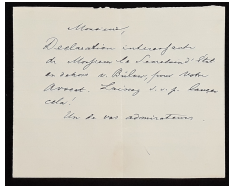 Monsieur,
Déclaration intéressante
de Monsieur le Secrétaire d'Etat
en dehors v. Bülow, pour votre
Avocat. Laissez s.v.p. lancer
cela!
Un de vos admirateurs.